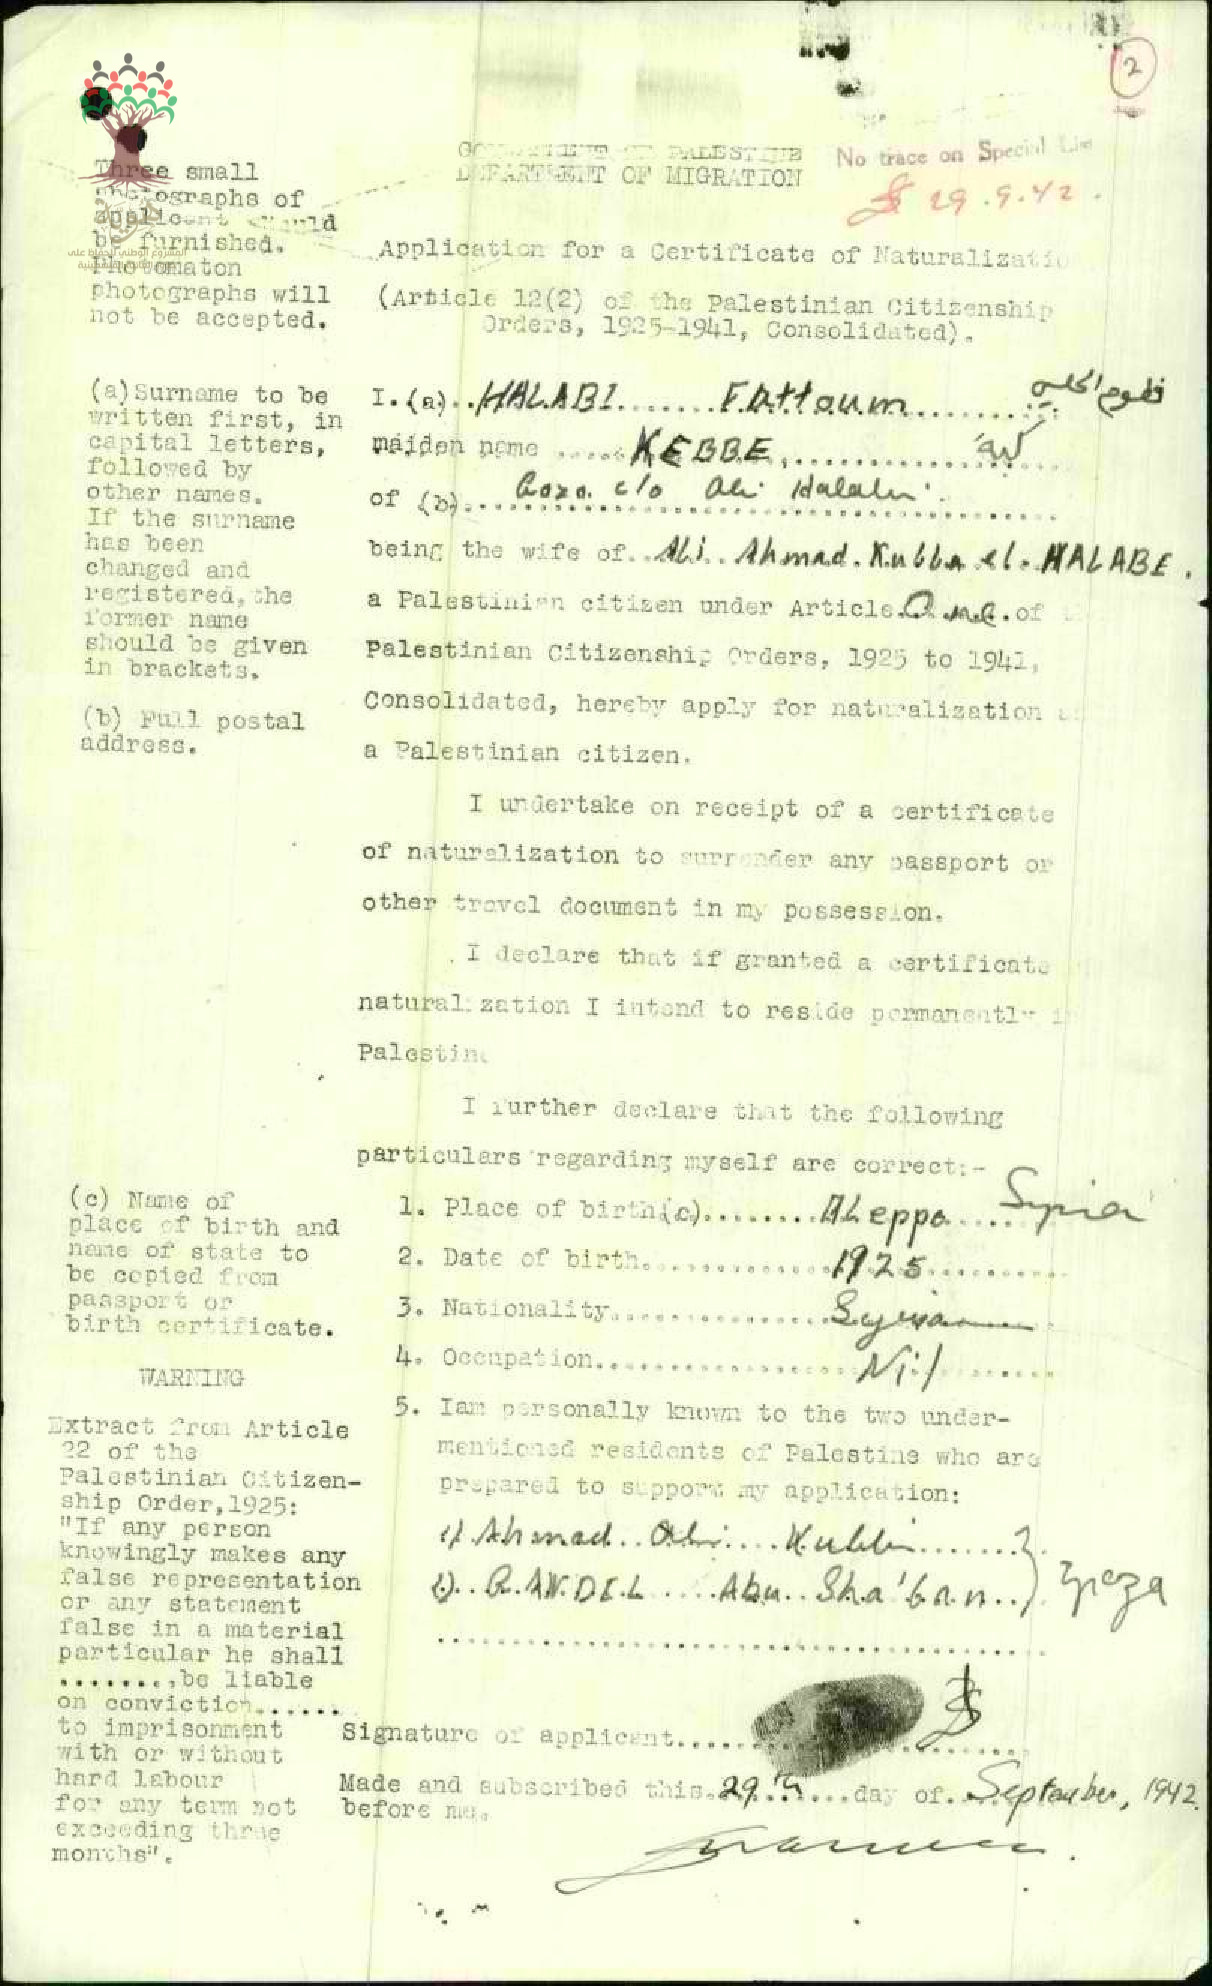 2
GOVERNMENT OF PALESTINE
DEPARTMENT OF MIGRATION
No trace on Special List
29.9.42.
Three small
photographs of
applicant should
be furnished.
Photomaton
photographs will
not be accepted.
Application for a Certificate of Naturalizatio
(Article 12(2) of the Palestinian Citizenship
Orders, 1925-1941, Consolidated).
(a)Surname to be
written first, in
capital letters,
followed by
other names.
If the surname
has been
changed and
registered, the
former name
should be given
in brackets.
(b) Full postal
address.
I. (a)..HALABI.......Fattoum............ فطوم الحلبي
maiden name ......KEBBE.................. كبه
of (b)....Gaza. c/o Ali Halabi
being the wife of..Ali..Ahmad.Kubba el.HALABE.
a Palestinian citizen under Article.One.of
Palestinian Citizenship Orders, 1925 to 1941,
Consolidated, hereby apply for naturalization a
a Palestinian citizen.
I undertake on receipt of a certificate
of naturalization to surrender any passport or
other travel document in my possession.
I declare that if granted a certificate
naturalization I intend to reside permanently i
Palestine
I further declare that the following
particulars regarding myself are correct:-
(c) Name of
place of birth and
name of state to
be copied from
passport or
birth certificate.
1. Place of birth(c)........ALeppo.... Syria
2. Date of birth...............1925...........
3. Nationality................Syrian
4. Occupation...................Nil..........
5. Iam personally known to the two under-
mentioned residents of Palestine who are
prepared to support my application:
1) Ahmad..Ali....Kubbi.......
Abu..Sha'ban..
Gaza
WARNING
Extract from Article
22 of the
Palestinian Citizen-
ship Order,1925:
"If any person
knowingly makes any
false representation
or any statement
false in a material
particular he shall
........,be liable
on conviction......
to imprisonment
with or without
hard labour
for any term not
exceeding three
months".
Signature of applicant....
Made and subscribed this.29.th...day of..September, 1942.
before me.